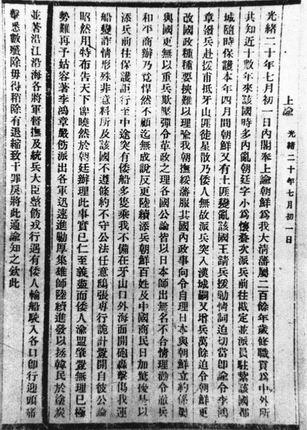 上諭　光緒二十年七月初一日
光緒二十年七月初一日內閣奉上諭朝鮮爲我大清藩屬二百餘年歲修職貢爲中外所
共知近十數年來該國時多內亂朝廷字小爲懷疊次派兵前往戡定並派員駐紮該國都
城隨時保護本年四月間朝鮮又有土匪變亂該國王請兵援勦情詞迫切當卽諭令李鴻
章撥兵赴援甫抵牙山匪徒星散乃倭人無故派兵突入漢城嗣又增兵萬餘迫令朝鮮更
改國政種種要挾難以理喻我朝撫綏藩服其國內政事向令自理日本與朝鮮立約係屬
與國更無以重兵欺壓強令革政之理各國公論皆以日本師出無名不合情理勸令撤兵
和平商辦乃竟悍然不顧迄無成說反更陸續添兵朝鮮百姓及中國商民日加驚擾是以
添兵前往保護詎行至中途突有倭船多隻乘我不備在牙山口外海面開礮轟擊傷我運
船變詐情形殊非意料所及該國不遵條約不守公法任意鴟張專行詭計釁開自彼公論
昭然用特布告天下俾曉然於朝廷辦理此事實已仁至義盡而倭人渝盟肇釁無理已極
勢難再予姑容著李鴻章嚴飭派出各軍迅速進勦厚集雄師陸續進發以拯韓民於塗炭
並著沿江沿海各將軍督撫及統兵大臣整飭戎行遇有倭人輪船駛入各口卽行迎頭痛
擊悉數殲除毋得稍有退縮致干罪戾將此通諭知之欽此